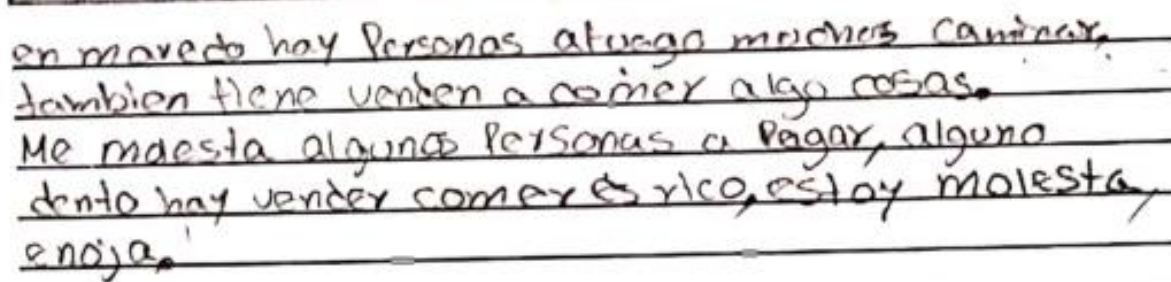 en mavedo hay Personas atuago moches caminar,
tambien tiene venten a comer algo cosas.
Me maesta algunas Personas a Pagar, alguno
dento hay vender comer es rico, estoy molesta,
enoja.